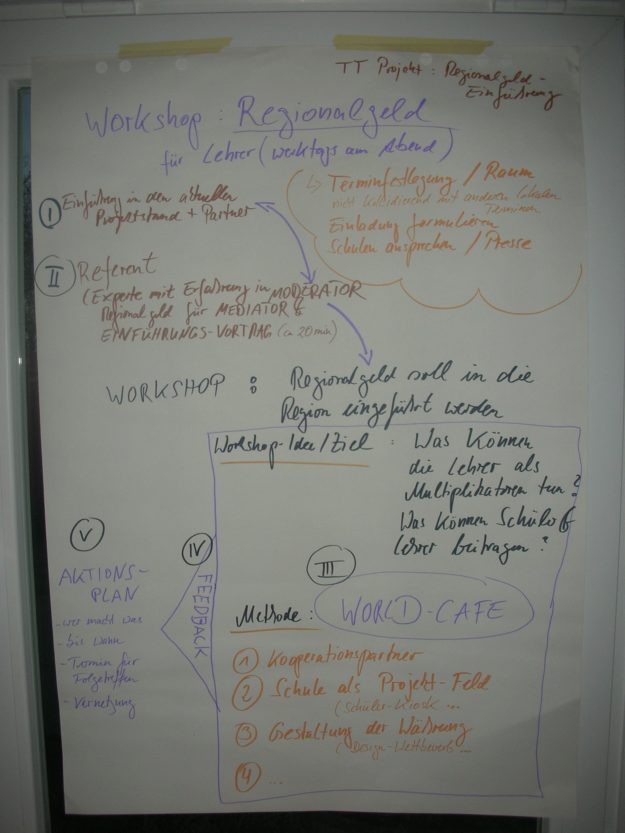 TT Projekt: Regionalgeld-
Einführung
Workshop: Regionalgeld
für Lehrer (werktags am Abend)
I Einführung in den aktuellen
Projektstand + Partner
↳ Terminfestlegung / Raum
nicht kollidierend mit anderen lokalen
Terminen
Einladung formulieren
Schulen ansprechen / Presse
II Referent
(Experte mit Erfahrung in MODERATOR
Regionalgeld für MEDIATOR &
EINFÜHRUNGS-VORTRAG (ca 20 min)
WORKSHOP : Regionalgeld soll in die
Region eingeführt werden
Workshop-Idee/Ziel : Was können
die Lehrer als
Multiplikatoren tun?
Was können Schüler &
Lehrer beitragen?
III
Methode: WORLD-CAFE
1 Kooperationspartner
2 Schule als Projekt-Feld
(Schüler-Kiosk ...
3 Gestaltung der Währung
(Design-Wettbewerb ...
4 ...
IV
FEEDBACK
V
AKTIONS-
PLAN
- wer macht was
- bis wann
- Termin für
Folgetreffen
- Vernetzung